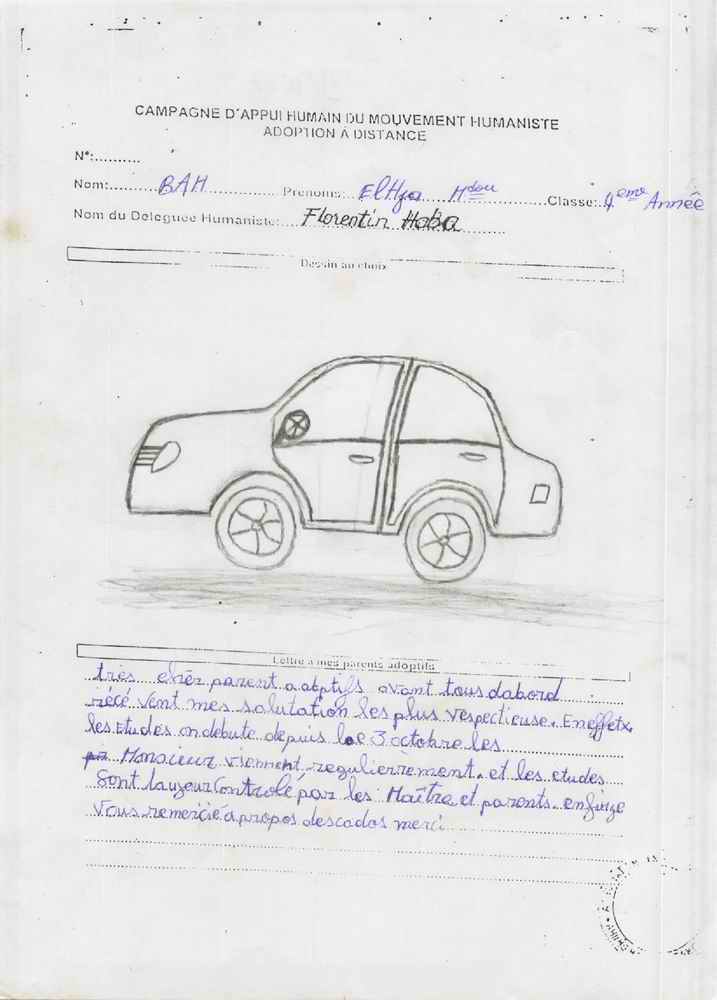 CAMPAGNE D'APPUI HUMAIN DU MOUVEMENT HUMANISTE
ADOPTION A DISTANCE
N°:..........
Nom:........BAH.................... Prénoms:..ElHja Mdou..........Classe:.4eme Année
Nom du Déléguée Humaniste:....Florentin Haba..........
Dessin au choix
Lettre à mes parents adoptifs
très cher parent adoptifs avant tous dabord
récé vent mes salutation les plus respectieuse. En effetx
les Etudes on debute depuis le 3 octobre les
Monsieur viennent regulierrement. et les etudes
Sont Controlé par les Maître et parents. enfin je
Vous remercie à propos des cados merci